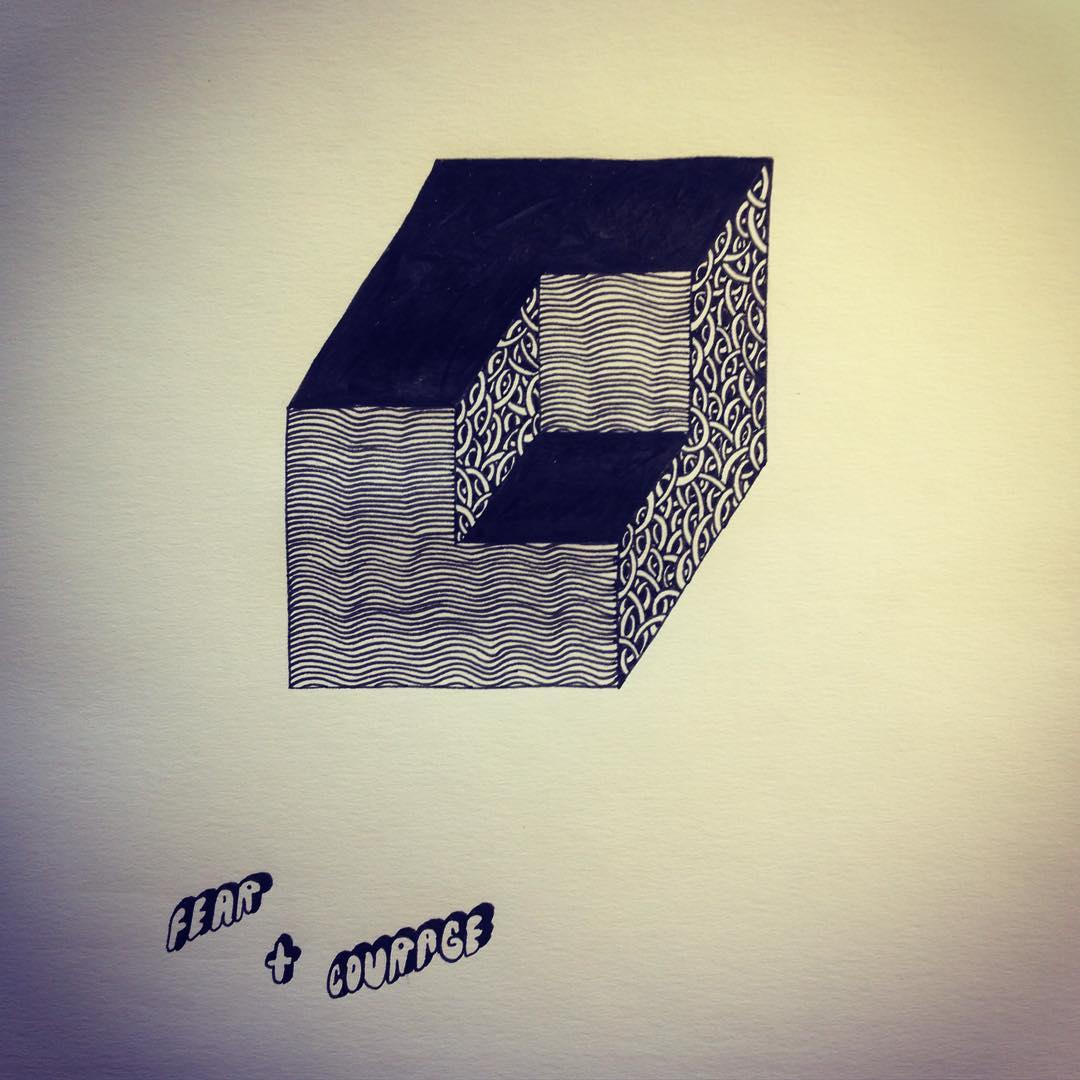 FEAR
+ COURAGE